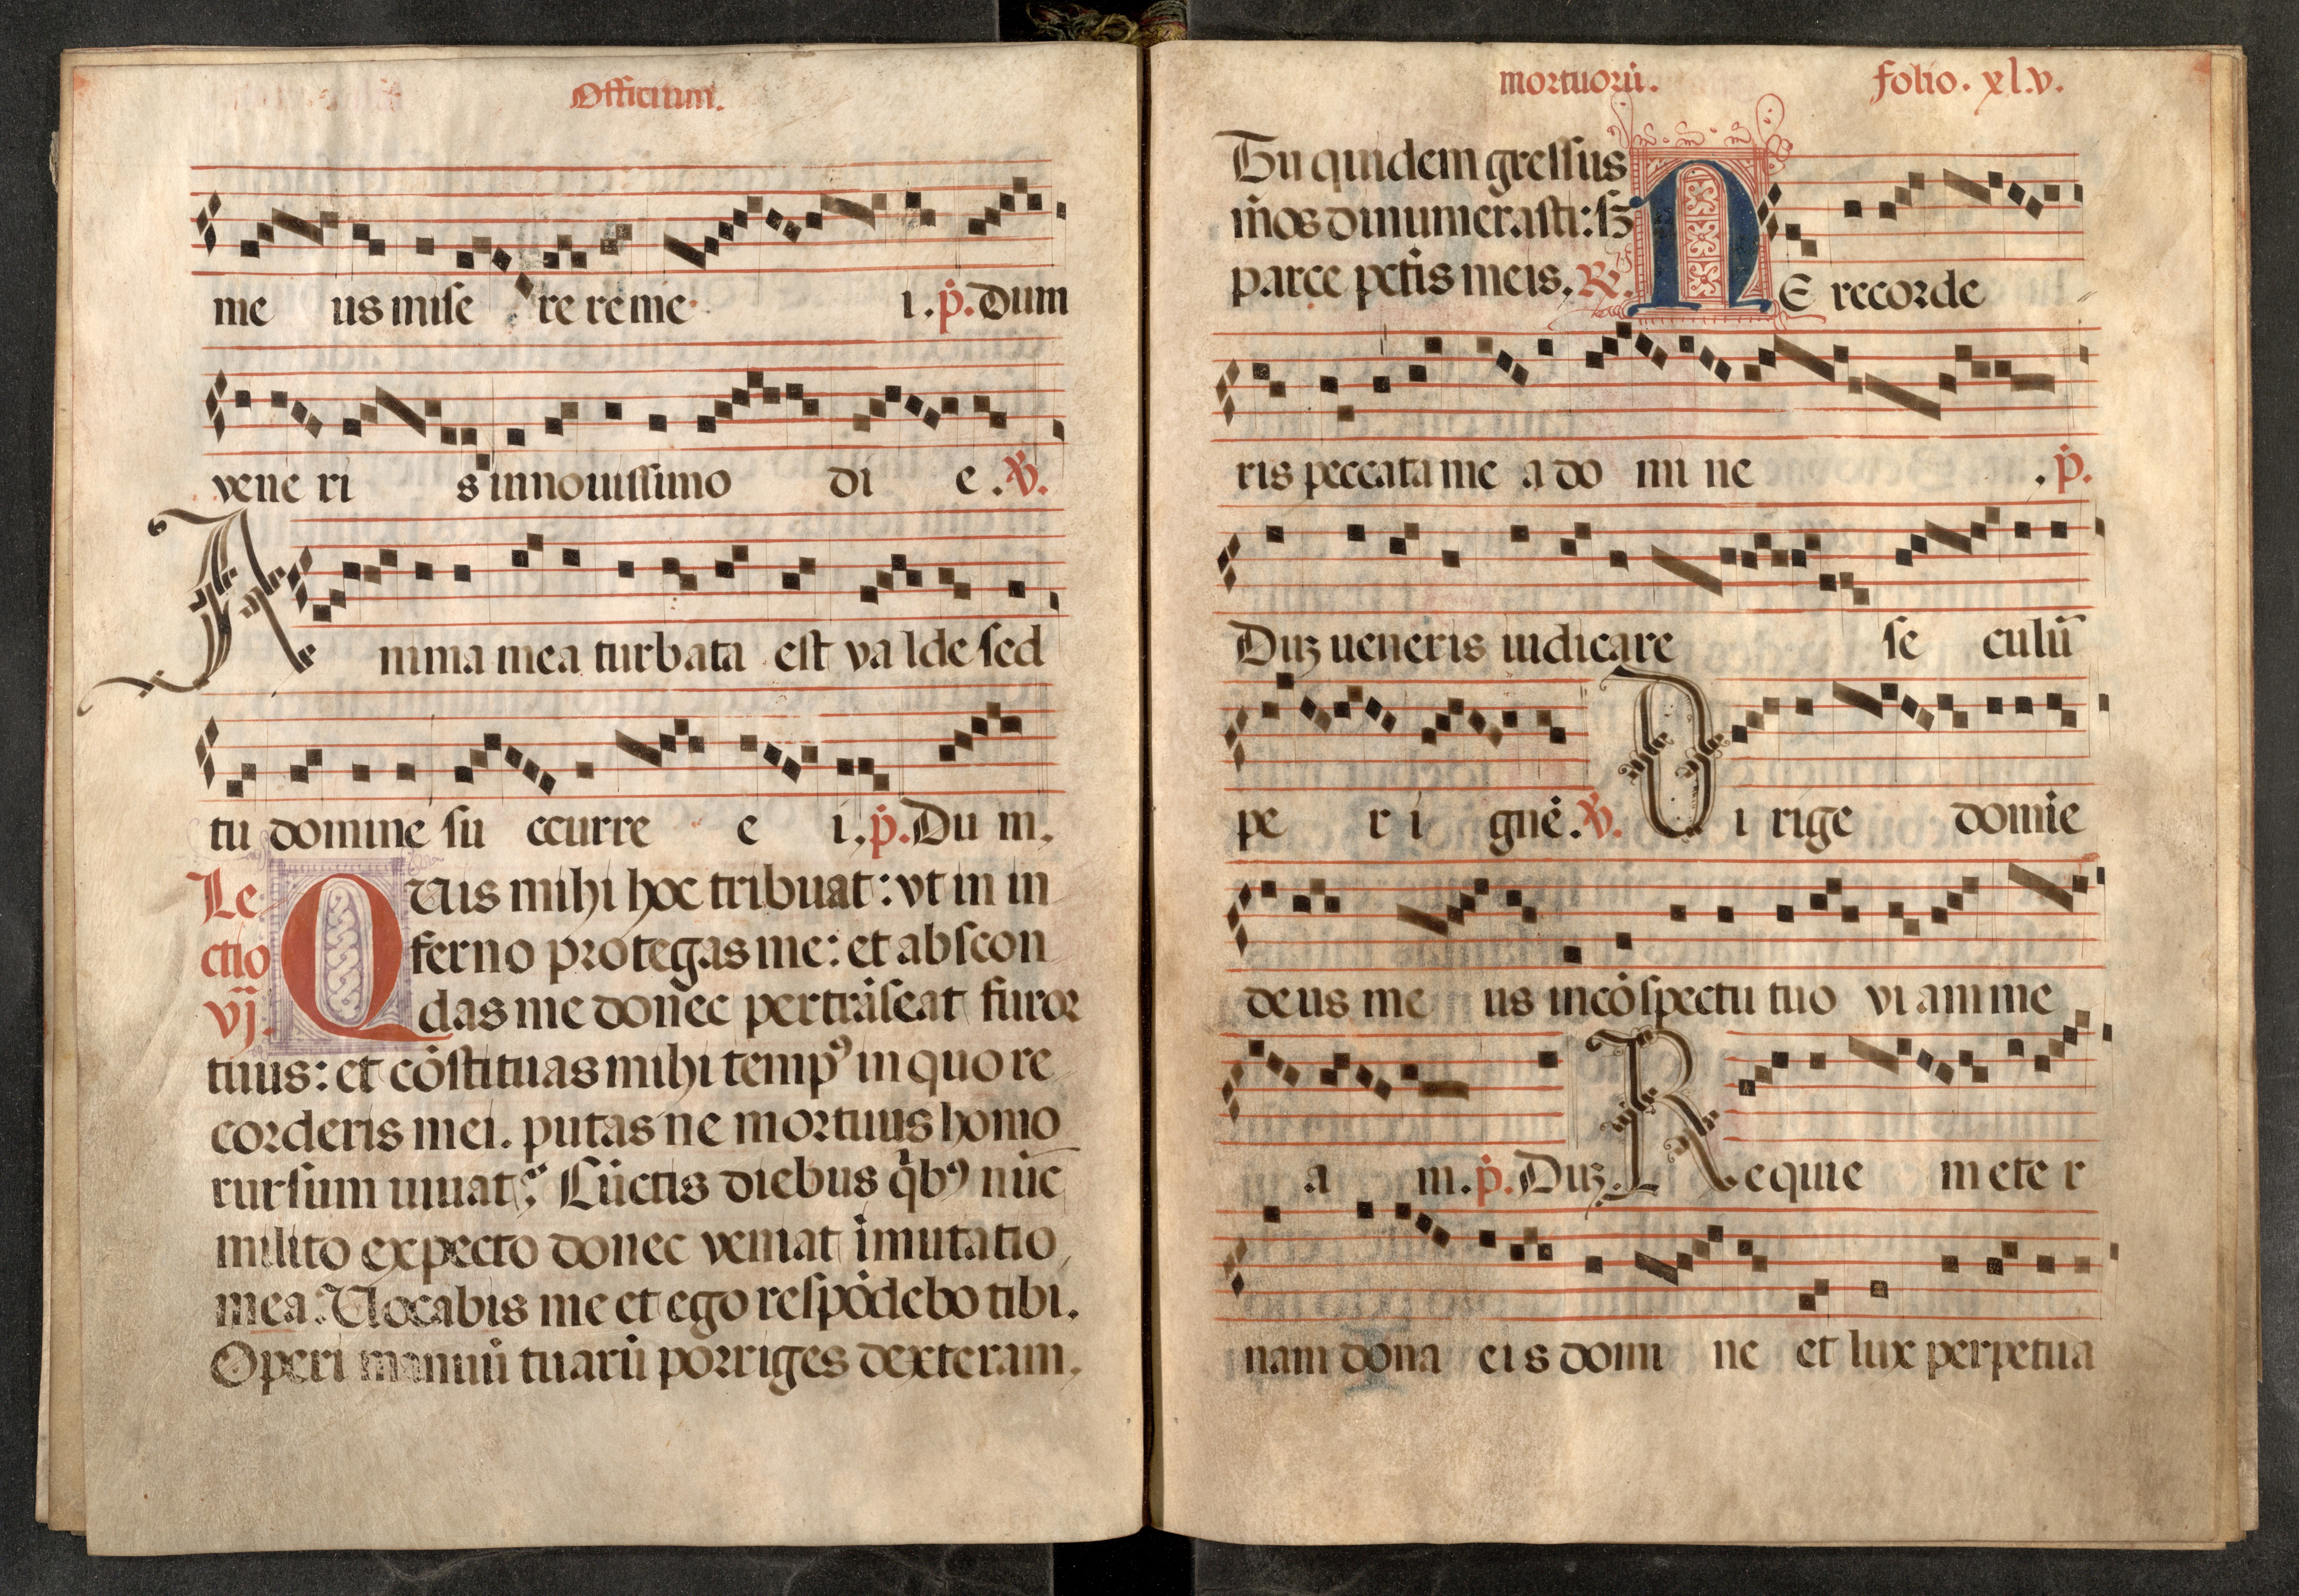 Officium.
me us mise re re me i. p̄. Dum
vene ri s in nouissimo di e. V̄.
A nima mea turbata est va lde sed
tu domine su ccurre e i, p̄. Du m,
Le QUis mihi hoc tribuat: vt in in
ctio ferno protegas me: et abscon
vij. das me donec pertrāseat furor
tuus: et cōstituas mihi tempꝰ in quo re
corderis mei. putas ne mortuus homo
rursum uiuat? Cūctis diebus q̄bꝰ nūc
milito expecto donec veniat īmutatio
mea. Uocabis me et ego respōdebo tibi.
Operi manuū tuarū porriges dexteram,
mortuorū. folio. xl.v.
Tu quidem gressus
m̄os dinumerasti: sꝫ
parce pctīs meis, R̄. NE recorde
ris peccata me a do mi ne . p̄.
Duꝫ ueneris iudicare se culū
pe r i gnē. V̄. Di rige domīe
deus me us in cōspectu tuo vi am me
a m. p̄. Duꝫ. Requie m ete r
nam dona ei s domi ne et lux perpetua